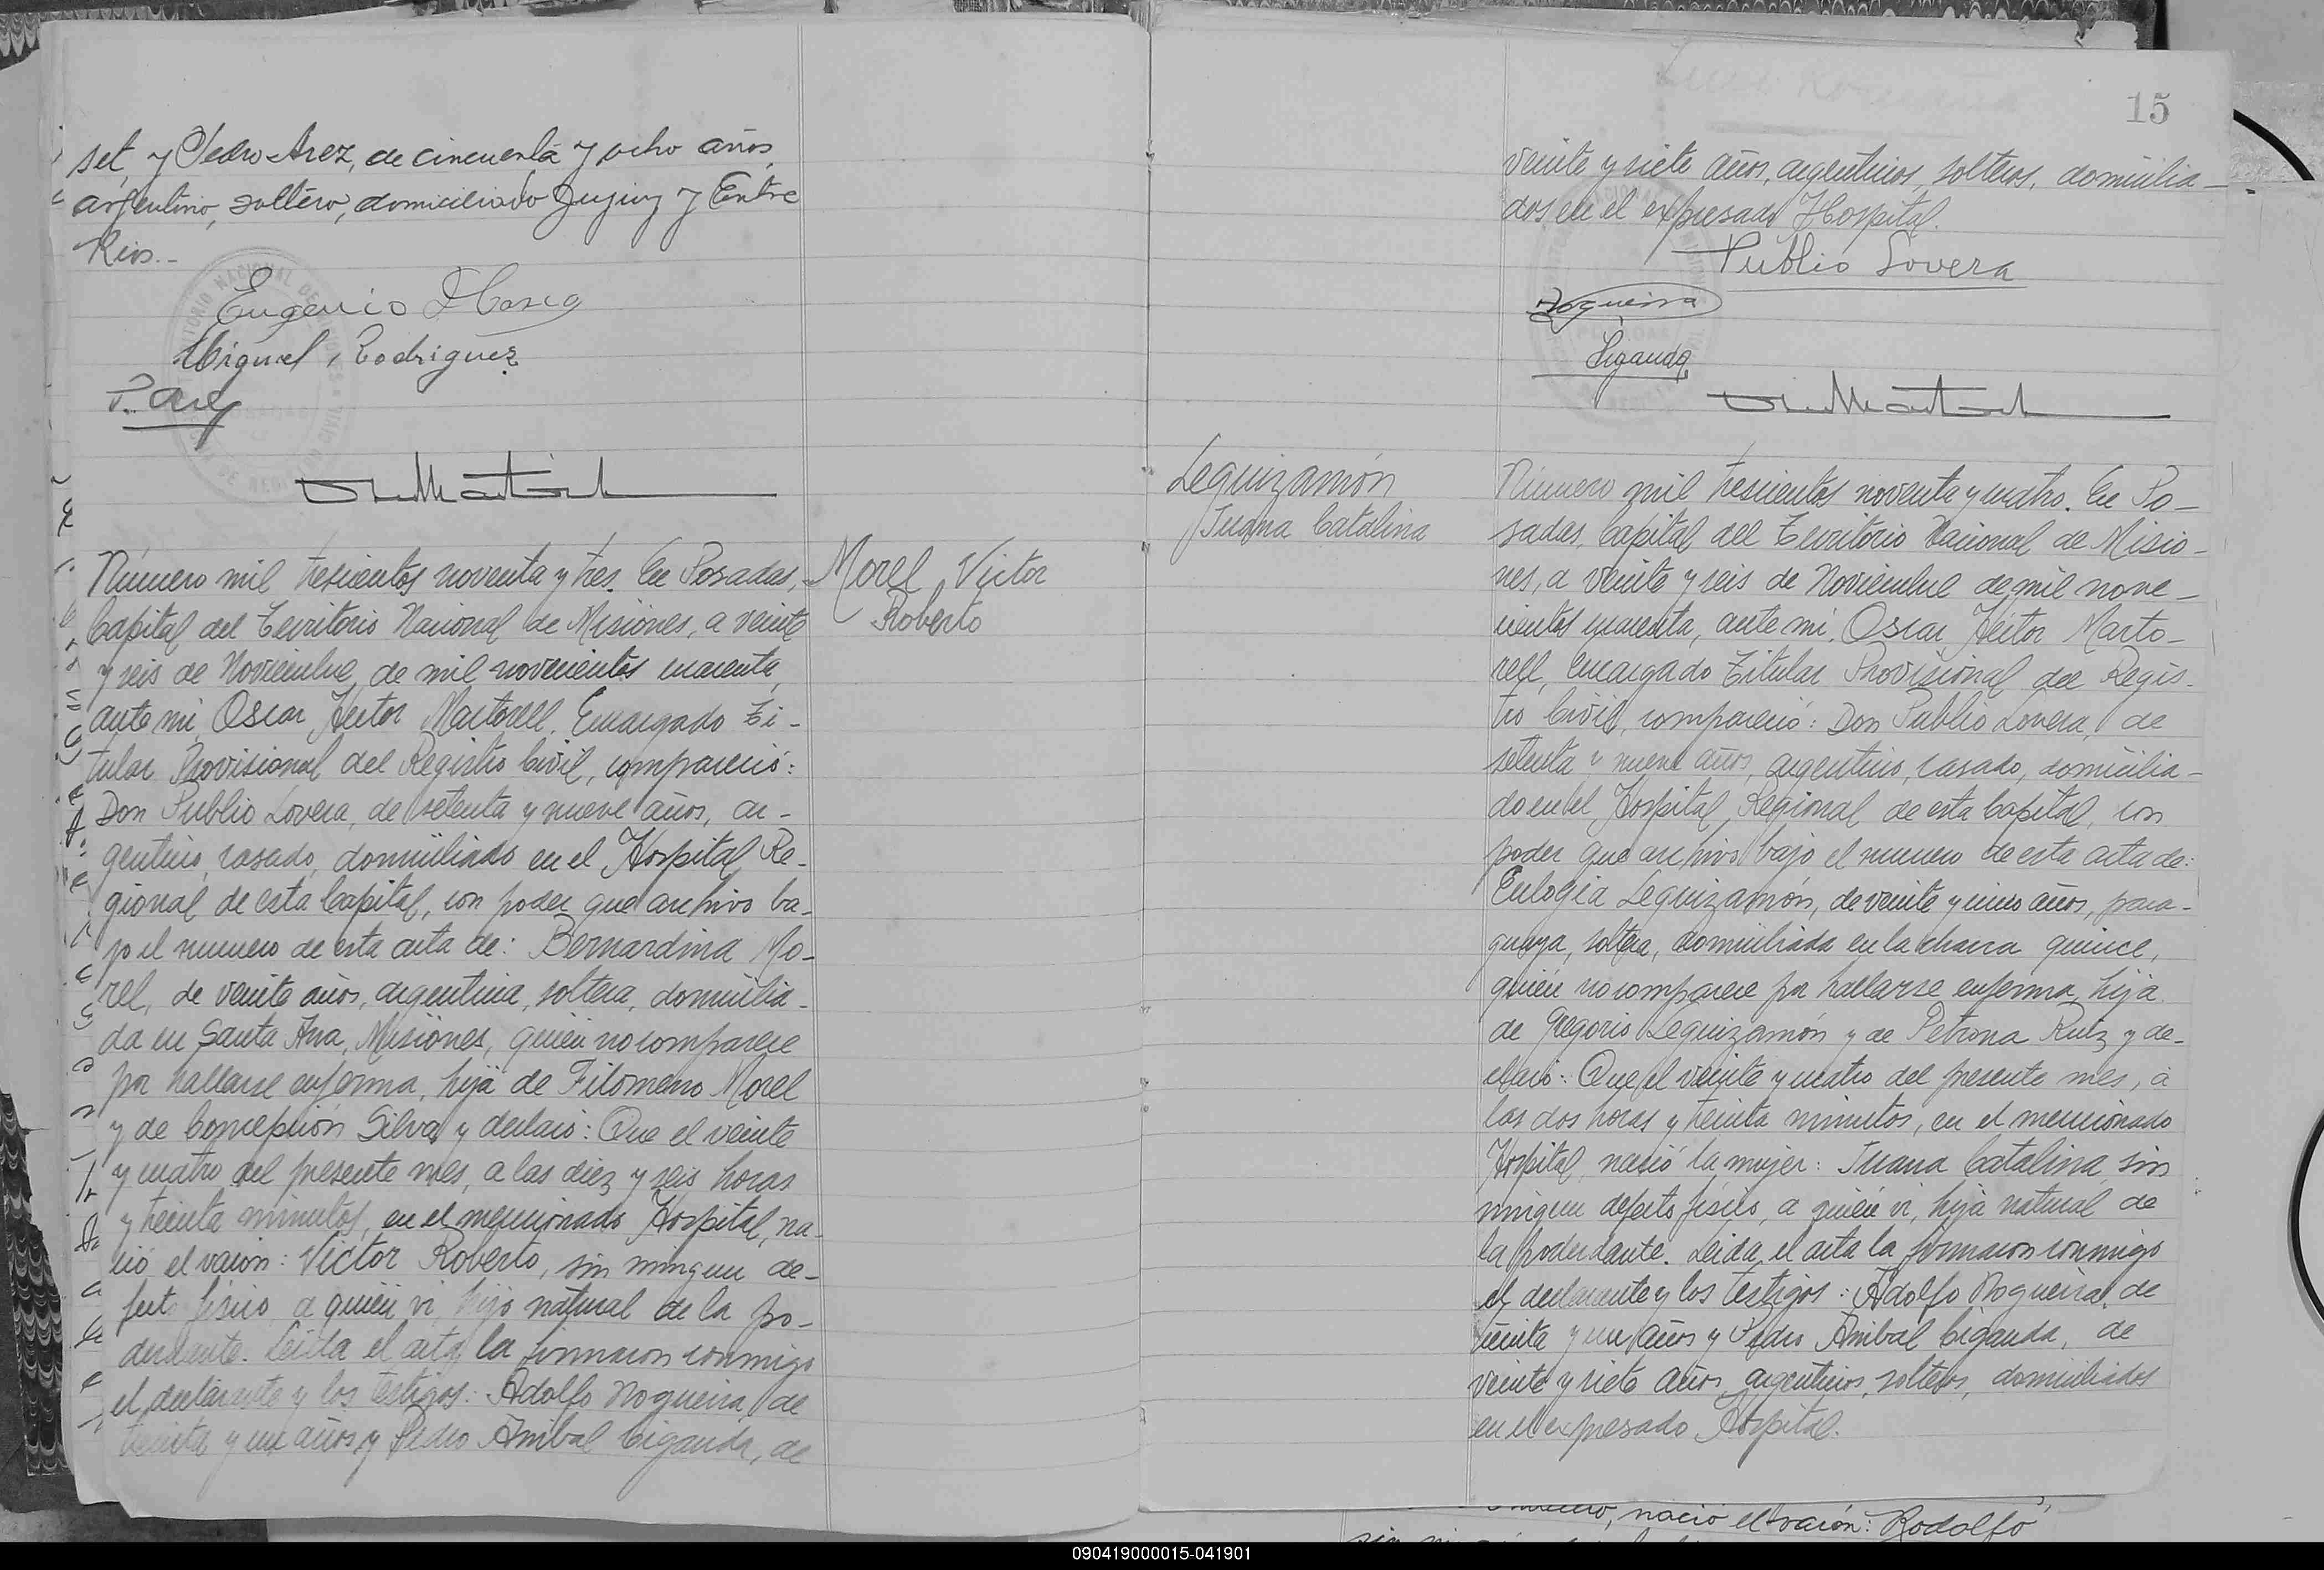 set, y Pedro Arez, de cincuenta y ocho años,
argentino, soltero, domiciliado Jujuy y Entre
Rios.-
Eugenio
Miguel Rodriguez
P. Arez
Número mil trescientos noventa y tres. En Posadas,
Capital del Territorio Nacional de Misiones, a veinte
y seis de Noviembre de mil novecientos cuarenta,
ante mi, Oscar Héctor Martorell, Encargado Ti-
tular Provisional del Registro Civil, compareció:
Don Publio Lovera, de setenta y nueve años, ar-
gentino, casado, domiciliado en el Hospital Re-
gional de esta Capital, con poder que archivo ba-
jo el numero de esta acta de: Bernardina Mo-
rel, de veinte años, argentina, soltera, domicilia-
da en Santa Ana, Misiones, quién no comparece
por hallarse enferma, hija de Filomeno Morel
y de Concepción Silva y declaró: Que el veinte
y cuatro del presente mes, a las diez y seis horas
y treinta minutos, en el mencionado Hospital, na-
ció el varón: Victor Roberto, sin ningun de-
fecto fisico, a quién vi, hijo natural de la po-
derdante. Leida el acta la firmaron conmigo
el declarante y los testigos: Adolfo Nogueira, de
treinta y un años y Pedro Anibal Ciganda, de
Morel, Victor
Roberto
15
veinte y siete años, argentinos, solteros, domicilia-
dos en el expresado Hospital.
Publio Lovera
Nogueira
Ciganda
Leguizamón
Juana Catalina
Número mil trescientos noventa y cuatro. En Po-
sadas, Capital del Territorio Nacional de Misio-
nes, a veinte y seis de Noviembre de mil nove-
cientos cuarenta, ante mi, Oscar Héctor Marto-
rell, Encargado Titular Provisional del Regis-
tro Civil, compareció: Don Publio Lovera, de
setenta y nueve años, argentino, casado, domicilia-
do en el Hospital Regional de esta Capital, con
poder que archivo bajo el numero de esta acta de:
Eulogia Leguizamón, de veinte y cinco años, para-
guaya, soltera, domiciliada en la chacra quince,
quién no comparece por hallarse enferma, hija
de Gregorio Leguizamón y de Petrona Ruiz y de-
claró: Que el veinte y cuatro del presente mes, a
las dos horas y treinta minutos, en el mencionado
Hospital, nació la mujer: Juana Catalina, sin
ningun defecto fisico, a quién vi, hija natural de
la poderdante. Leida el acta la firmaron conmigo
el declarante y los testigos: Adolfo Nogueira, de
treinta y un años y Pedro Anibal Ciganda, de
veinte y siete años, argentinos, solteros, domiciliados
en el expresado Hospital.
nació el varón: Rodolfo
090419000015-041901